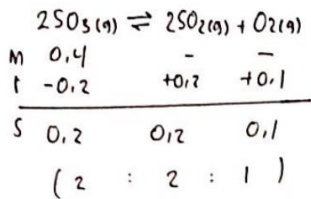 2SO₃(g) ⇌ 2SO₂(g) + O₂(g)
M 0,4 - -
r -0,2 +0,2 +0,1
S 0,2 0,2 0,1
( 2 : 2 : 1 )